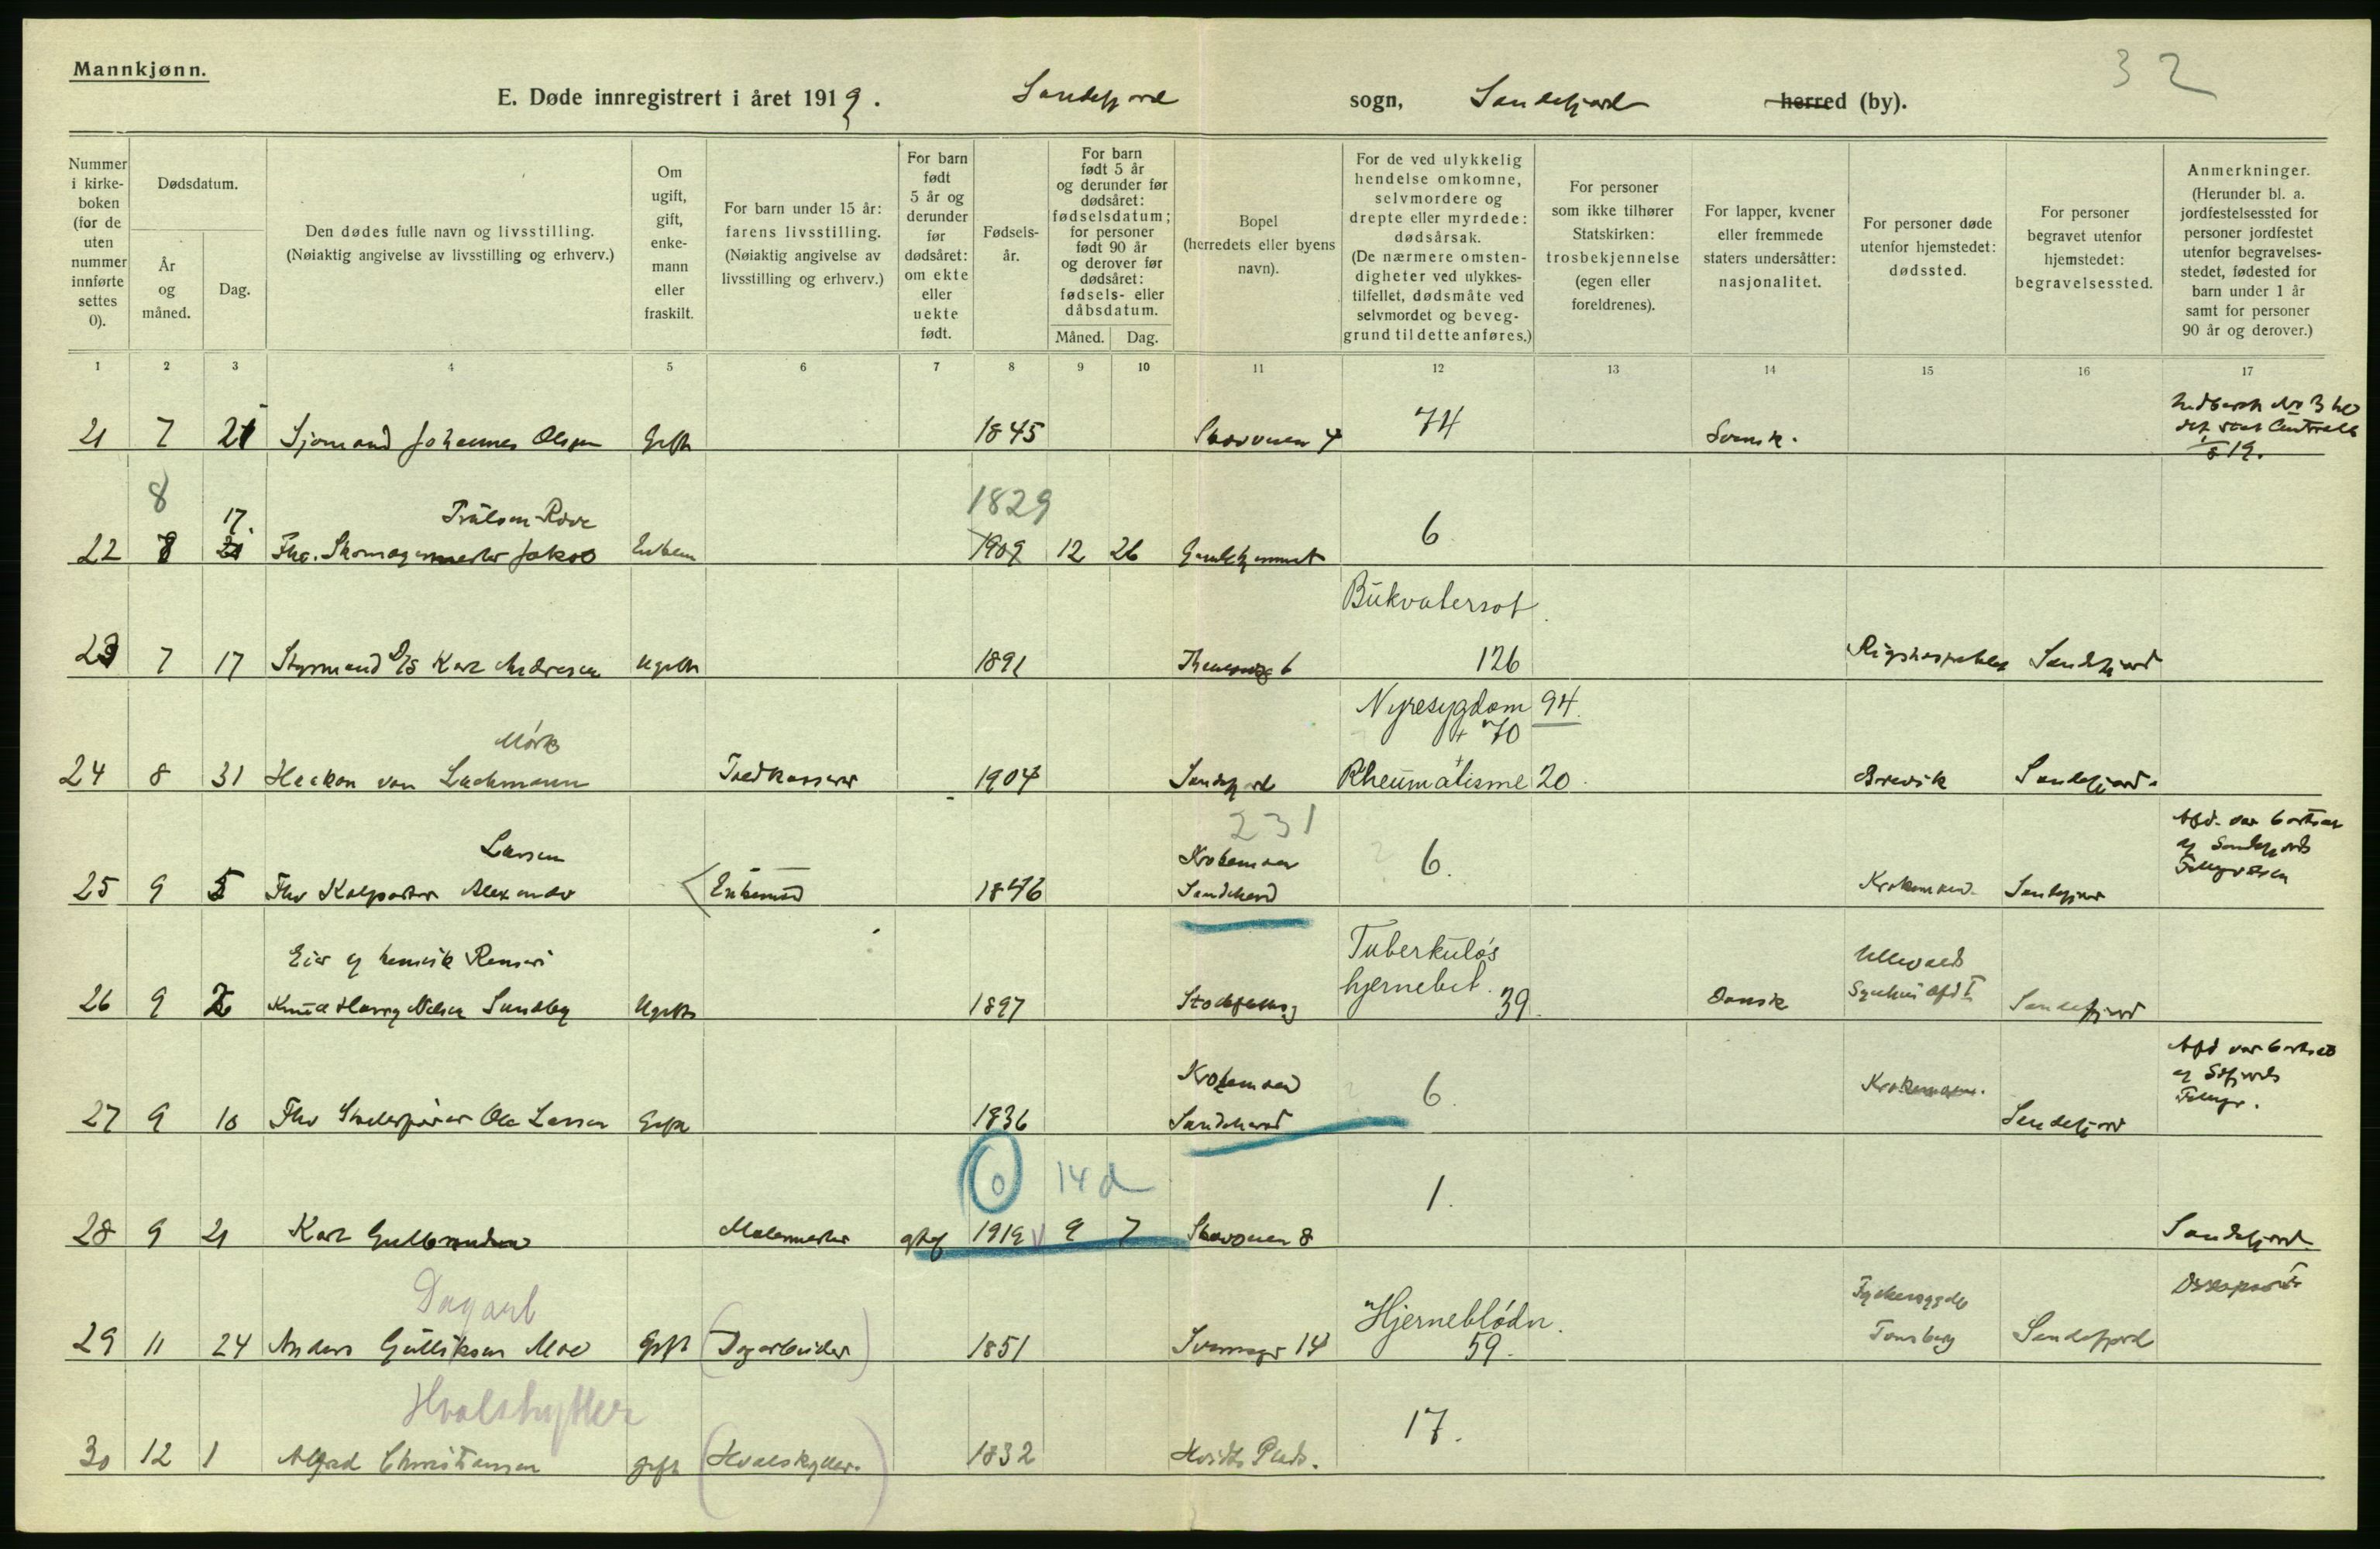 Mannkjønn.
32
E. Døde innregistrert i året 1919. Sandefjord sogn, Sandefjord herred (by).
Nummer i kirke- boken (for de uten nummer innførte settes 0).
Dødsdatum.
År og måned.
Dag.
Den dødes fulle navn og livsstilling.
(Nøiaktig angivelse av livsstilling og erhverv.)
Om ugift, gift, enke- mann eller fraskilt.
For barn under 15 år: farens livsstilling.
(Nøiaktig angivelse av livsstilling og erhverv.)
For barn født 5 år og derunder før dødsåret: om ekte eller uekte født.
Fødsels- år.
For barn født 5 år og derunder før dødsåret: fødselsdatum; for personer født 90 år og derover før dødsåret: fødsels- eller dåbsdatum.
Måned.
Dag.
Bopel (herredets eller byens navn).
For de ved ulykkelig hendelse omkomne, selvmordere og drepte eller myrdede: dødsårsak.
(De nærmere omsten- digheter ved ulykkes- tilfellet, dødsmåte ved selvmordet og beveg- grund til dette anføres.)
For personer som ikke tilhører Statskirken: trosbekjennelse (egen eller foreldrenes).
For lapper, kvener eller fremmede staters undersåtter: nasjonalitet.
For personer døde utenfor hjemstedet: dødssted.
For personer begravet utenfor hjemstedet: begravelsessted.
Anmerkninger.
(Herunder bl. a. jordfestelsessted for personer jordfestet utenfor begravelses- stedet, fødested for barn under 1 år samt for personer 90 år og derover.)
1 2 3 4 5 6 7 8 9 10 11 12 13 14 15 16 17
21 7 21 Sjømand Johannes Olsen Gift 1845 4 74 Svensk. No 3
19.
8 1829
17.
22 8 21 Fhv. Skomagermester Jakob 1909 12 26 Gamlehjemmet 6
Bukvatersot
23 7 17 Styrmand D/S Karl Andresen Ugift 1891 6 126 Rigshospitalet Sandefjord
Nyresygdom 94.
+ 70
Mørk
24 8 31 Haakon von Lachmann 1904 Sandefjord Rheumatisme 20. Brevik Sandefjord.
231
Larsen Krokemoen Afd. var bortsat
af Sandefjords
25 9 5 Fhv Kolportør Alexander Enkemand 1846 Sandeherd 6. Krokemoen. Sandefjord
Eier af kemisk Renseri
Tuberkuløs
Ullevaals
hjernebet.
26 9 2 Knud Harry Nielsen Sundby Ugift 1897 39. Dansk Sandefjord
Krokemoen Afd var bortsat
af Sdfjords
27 9 10 Fhv Ole Larsen Gift 1836 Sandeherd 6. Krokemoen. Sandefjord
0 14 d
28 9 21 Karl Gulbrandsen Malermester 1919 9 7 8 1. Sandefjord
Dagarb
Hjerneblødn.
29 11 24 Anders Gulliksen Moe Gift (Dagarbeider) 1851 14 59. Tønsberg Sandefjord
Hvalskytter
30 12 1 Alfred Christiansen gift (Hvalskytter.) 1832 Hvidts Plads. 17.